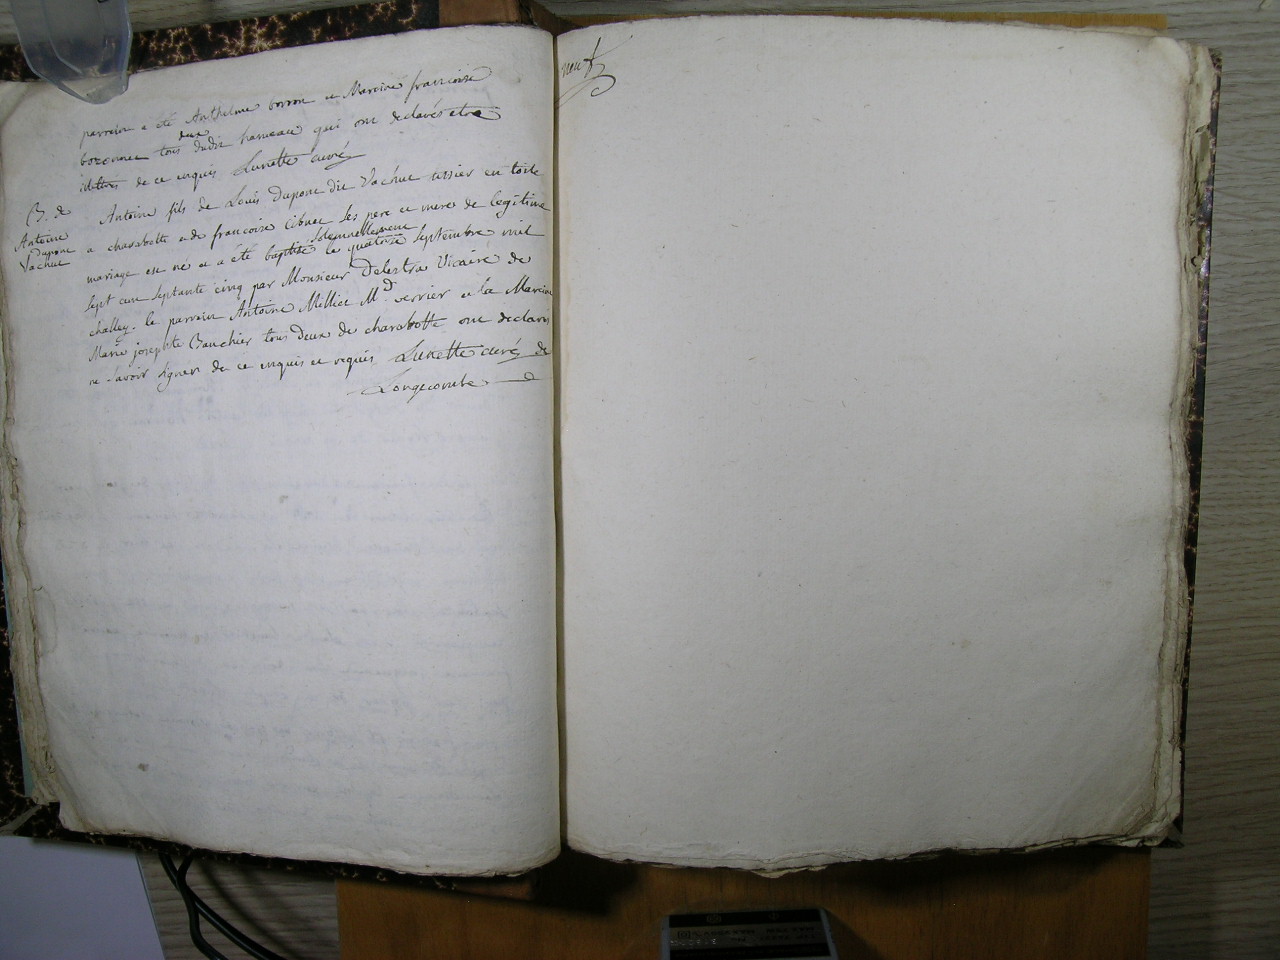 parrain a été Anthelme borron et Marraine francoise
bozonnet tous deux dudit hameau qui ont declarés etre
illitérés de ce enquis Lunette curé
B. de
Antoine
Dupont
Vachat
Antoine fils de Louis Dupont dit Vachat tissier en toile
a charabotte et de francoise cibuet ses pere et mere de legitime
mariage est né et a été baptisé solemnellement le quatorze septembre mil
sept cent septante cinq par Monsieur Delestra Vicaire de
challey. le parrain Antoine Milliet Md. verrier et la Marraine
Marie josephte Bauchier tous deux de charabotte ont declarés
ne savoir signer de ce enquis et requis Lunette curé de
Longecombe
neuf